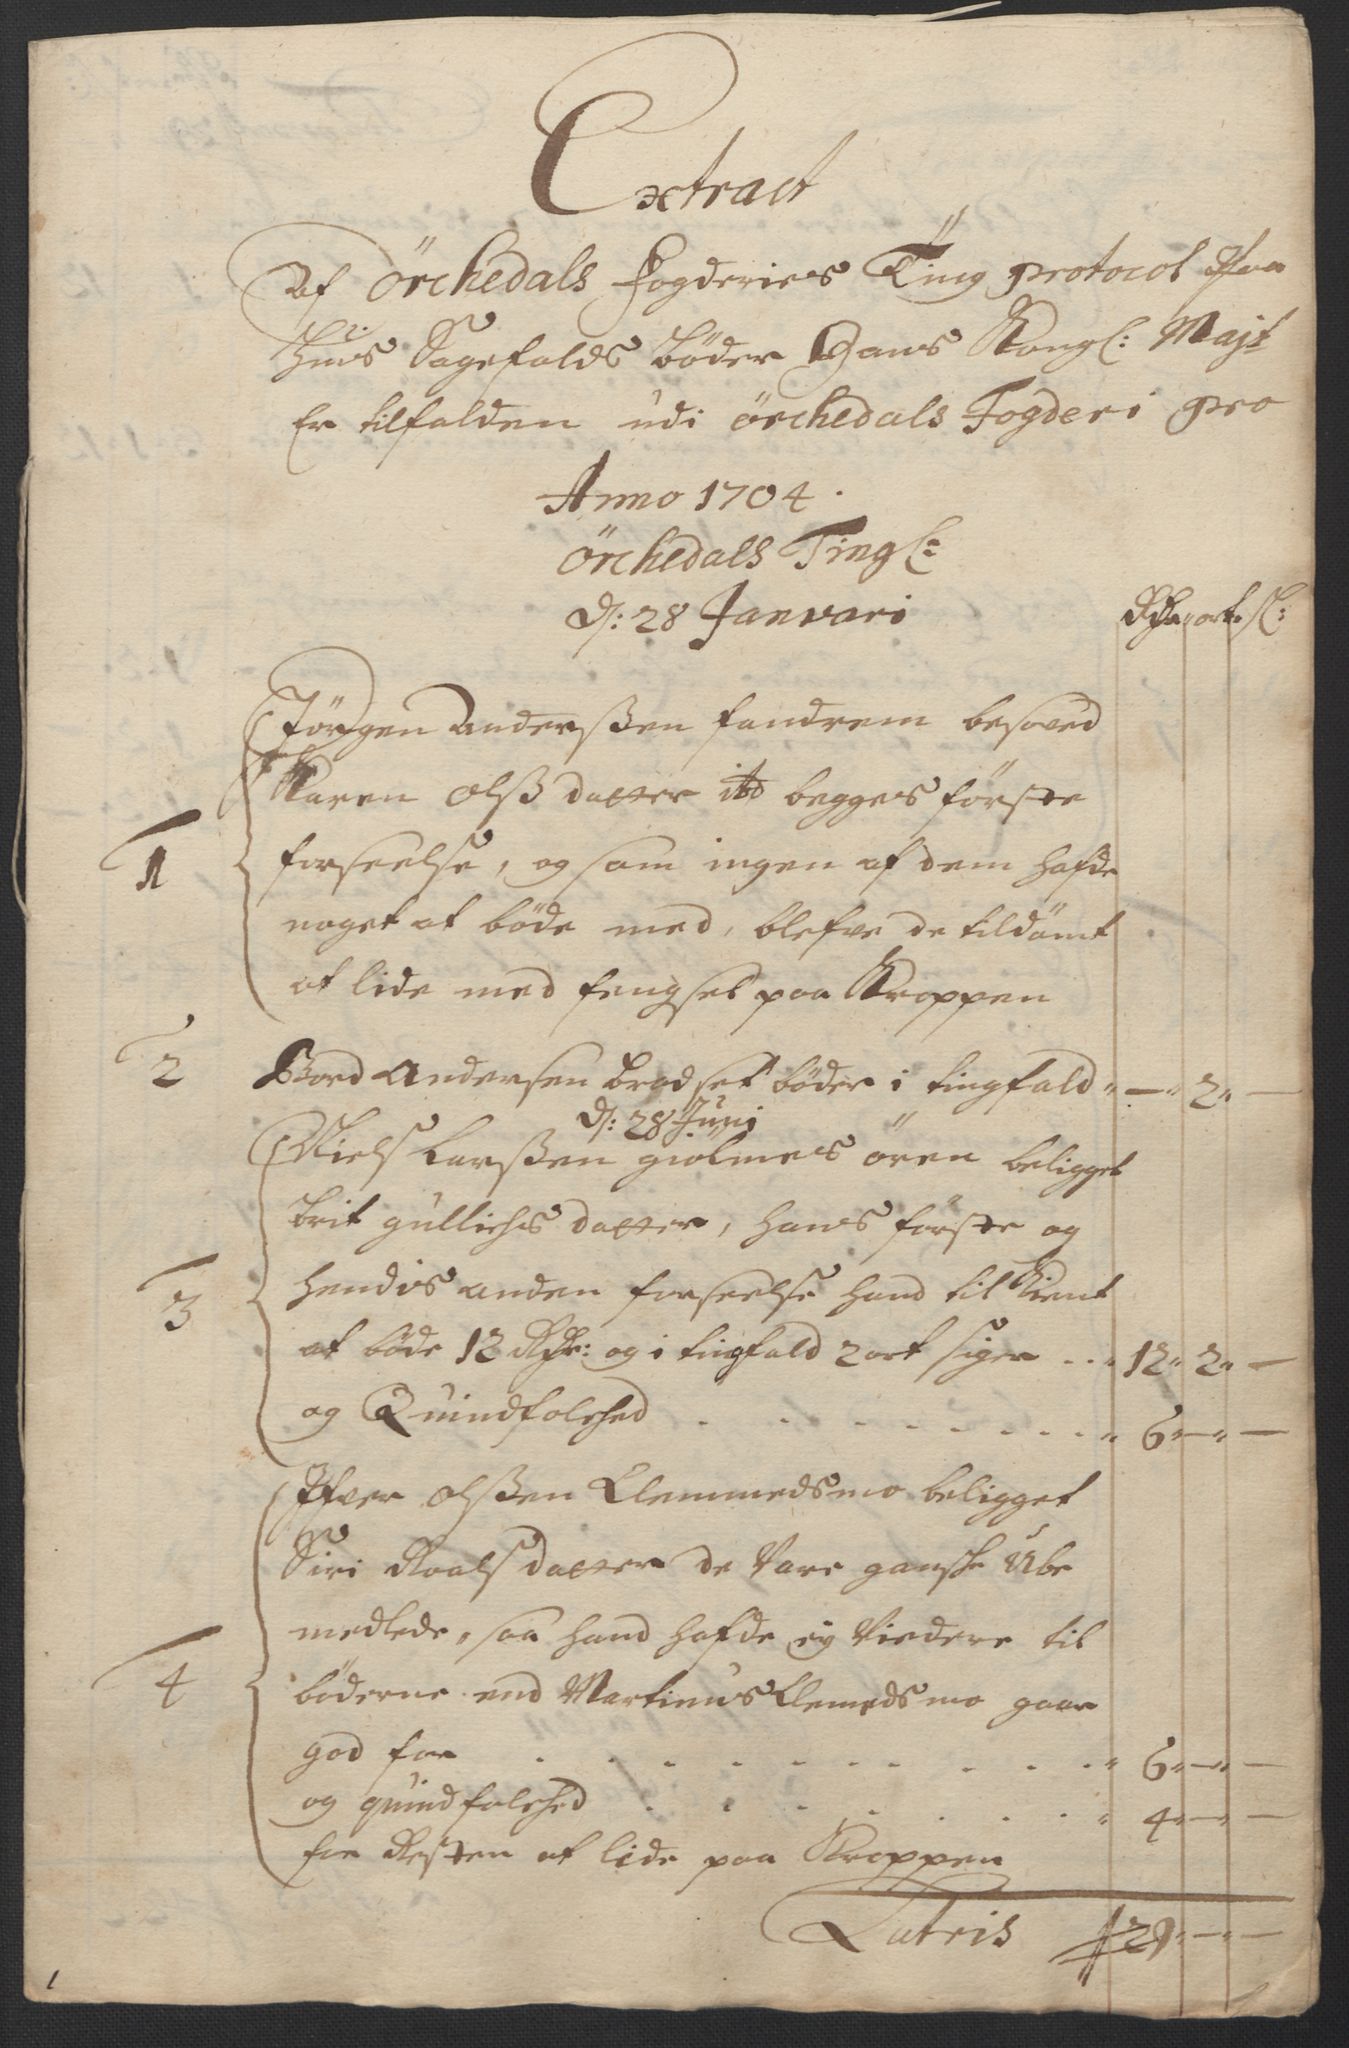 Extract
Af örchedals Fogderies Ting protocol Paa
hvis Sagefalds bøder Hans Kongl: Majt
Er tilfalden udi örchedals Fogderi pro
Anno 1704.
örchedals Tingl:
d: 28 Janvari
Rdr ort sl:
1
Jörgen anderßen fandrem besoved
Karen olß datter ibd begges förste
forseelse, og som ingen af dem hafde
noget at böde med, blefve de tildömt
at lide med fengsel paa Kroppen
2 Bord andersen bradset böder i tingfald - 2 -
d: 28 Juni
3
Niels Larßen giölmes ören beligget
brit gullichs datter, hans förste og
hendis anden forseelse hand til Kient
at böde 12 Rdr: og i tingfald 2 ort siger . . 12 2 -
og Quindfolched . . . . . . . . 6 - -
4
Ifver olßen Clemmedsmo beligget
Siri Roals datter de Vare gansche Ube
medlede, saa hand hafde ey Viedere til
böderne end Martinus Clemedsmo gaar
god for . . . . . . . . . . 6 - -
og quindfolched . . . . . . . 4 - -
for Resten at lide paa Kroppen
Latris 29 - -
1